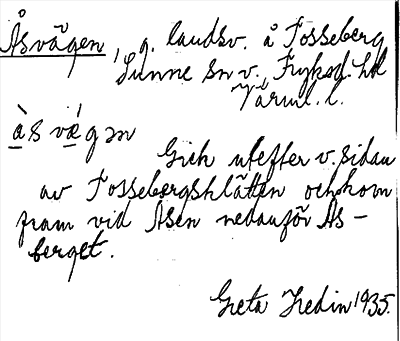 Åsvägen, g. landsv. å Tosseberg
Sunne sn v., Fryksd. hd
Värml. l.
às vǽgən
Gick utefter v. sidan
av Tossebergsklätten och kom
fram vid Åsen nedanför Ås-
berget.
Greta Hedin 1935.